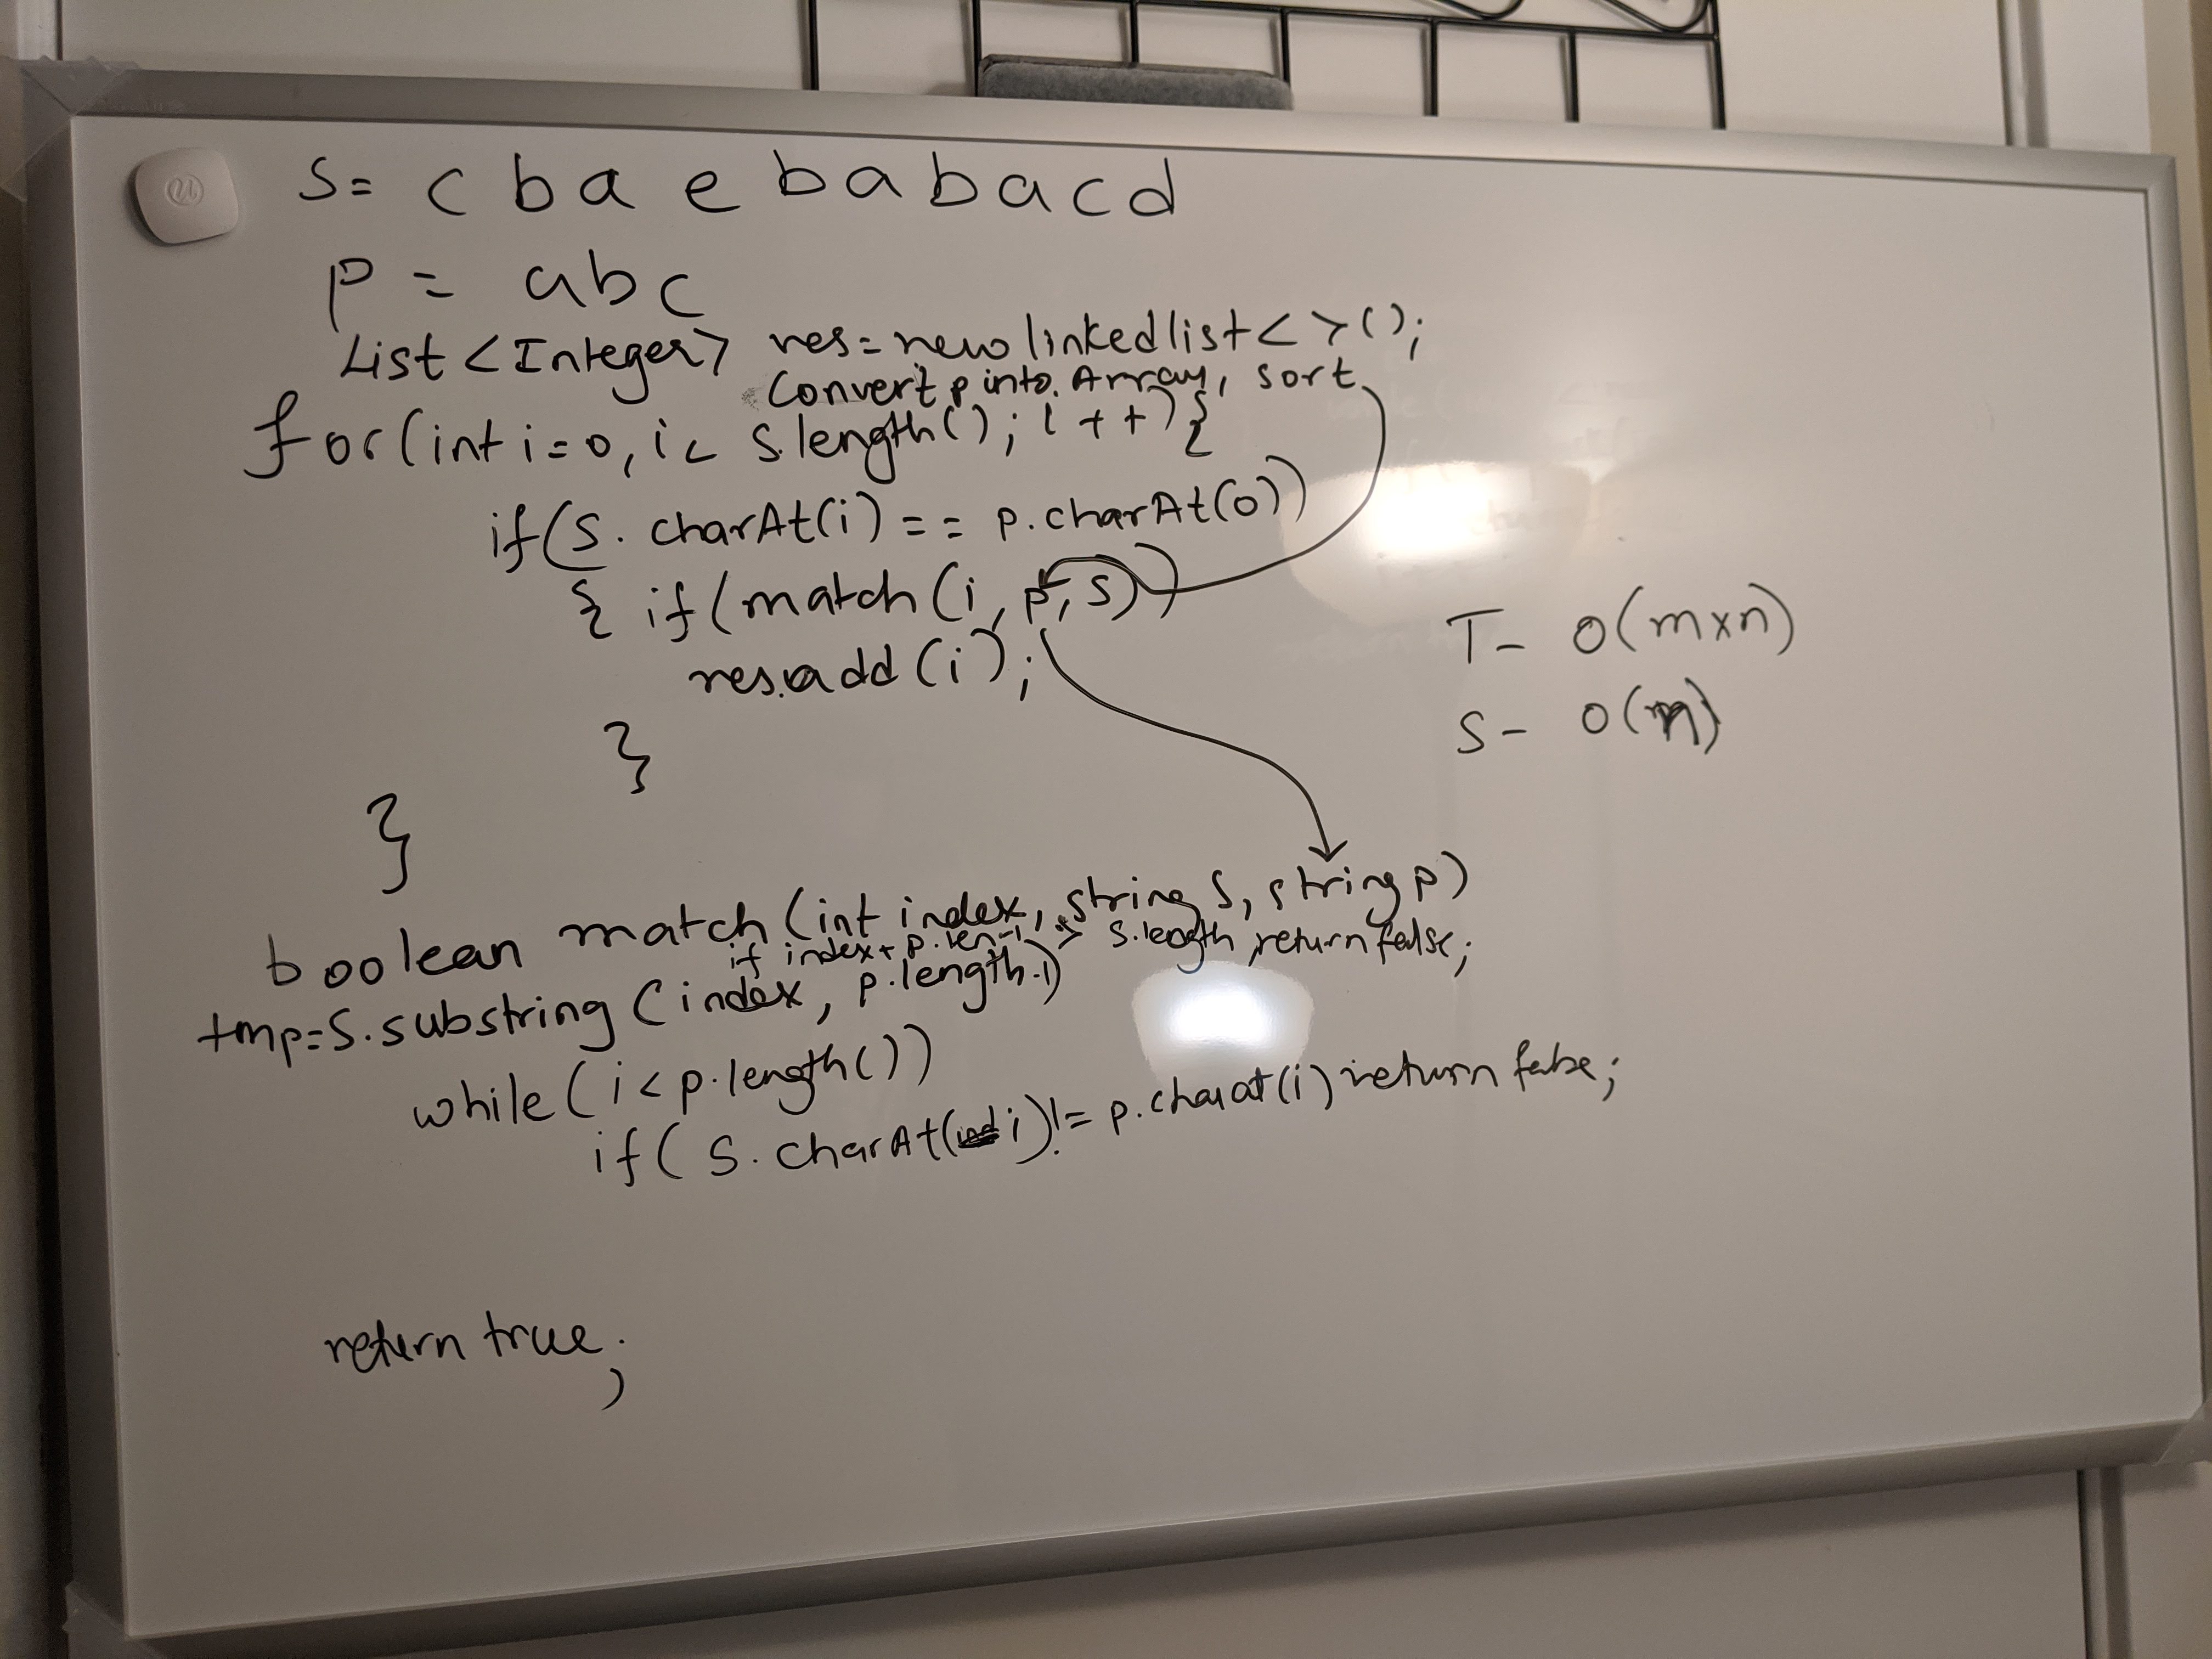 S= c b a e b a b a c d
P = abc
List <Integer> res= new linkedlist< >();
Convert p into Array, sort
for(int i=0, i< S.length(); i++){
if(S. charAt(i) == p.charAt(0))
{ if(match(i, p, s))
res.add(i);
}
}
T- O(m×n)
S- O(n)
boolean match(int index, string S, string p)
if index+ p.len-1 > S.length, return false;
tmp=S.substring(index, p.length-1)
while(i<p.length())
if( S. charAt(i)!= p.charat(i) return false;
return true;